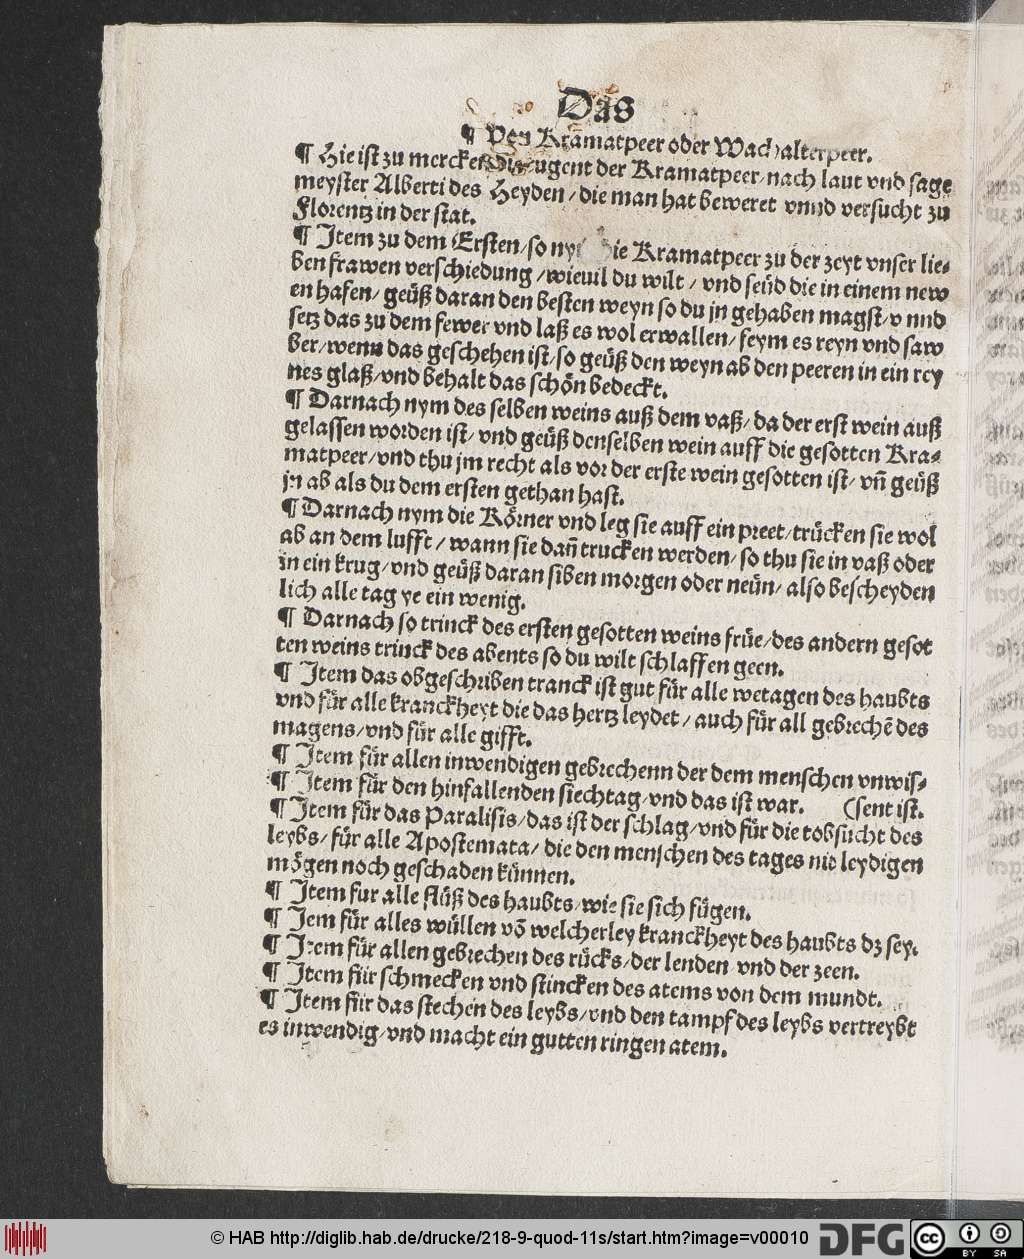 Das
¶ Von Kramatpeer oder Wachalterpeer.
¶ Hie ist zu mercken die tugent der Kramatpeer/nach laut vnd sage
meyster Alberti des Heyden/die man hat beweret vnnd versucht zu
Florentz in der stat.
¶ Item zu dem Ersten/so nym die Kramatpeer zu der zeyt vnser lie⸗
ben frawen verschiedung/wieuil du wilt/vnd seüd die in einem new
en hafen/geüß daran den besten weyn so du jn gehaben magst/v nnd
setz das zu dem fewer vnd laß es wol erwallen/feym es reyn vnd saw
ber/wenn das geschehen ist/so geüß den weyn ab den peeren in ein rey
nes glaß/vnd behalt das schön bedeckt.
¶ Darnach nym des selben weins auß dem vaß/da der erst wein auß
gelassen worden ist/vnd geüß denselben wein auff die gesotten Kra⸗
matpeer/vnd thu jm recht als vor der erste wein gesotten ist/vñ geüß
jn ab als du dem ersten gethan hast.
¶ Darnach nym die Körner vnd leg sie auff ein preet/trücken sie wol
ab an dem lufft/wann sie dañ trucken werden/so thu sie in vaß oder
in ein krug/vnd geüß daran siben morgen oder neün/also bescheyden
lich alle tag ye ein wenig.
¶ Darnach so trinck des ersten gesotten weins früe/des andern gesot
ten weins trinck des abents so du wilt schlaffen geen.
¶ Item das obgeschriben tranck ist gut für alle wetagen des haubts
vnd für alle kranckheyt die das hertz leydet/auch für all gebrechē des
magens/vnd für alle gifft.
¶ Item für allen inwendigen gebrechenn der dem menschen vnwis⸗
¶ Item für den hinfallenden siechtag/vnd das ist war. (sent ist.
¶ Item für das Paralisis/das ist der schlag/vnd für die tobsucht des
leybs/für alle Apostemata/die den menschen des tages nie leydigen
mögen noch geschaden künnen.
¶ Item fur alle flüß des haubts/wie sie sich fügen.
¶ Jem für alles wüllen vō welcherley kranckheyt des haubts dz sey.
¶ Item für allen gebrechen des rücks/der lenden vnd der zeen.
¶ Item für schmecken vnd stincken des atems von dem mundt.
¶ Item für das stechen des leybs/vnd den tampf des leybs vertreybt
es inwendig/vnd macht ein gutten ringen atem.
© HAB http://diglib.hab.de/drucke/218-9-quod-11s/start.htm?image=v00010
DFG
cc BY SA